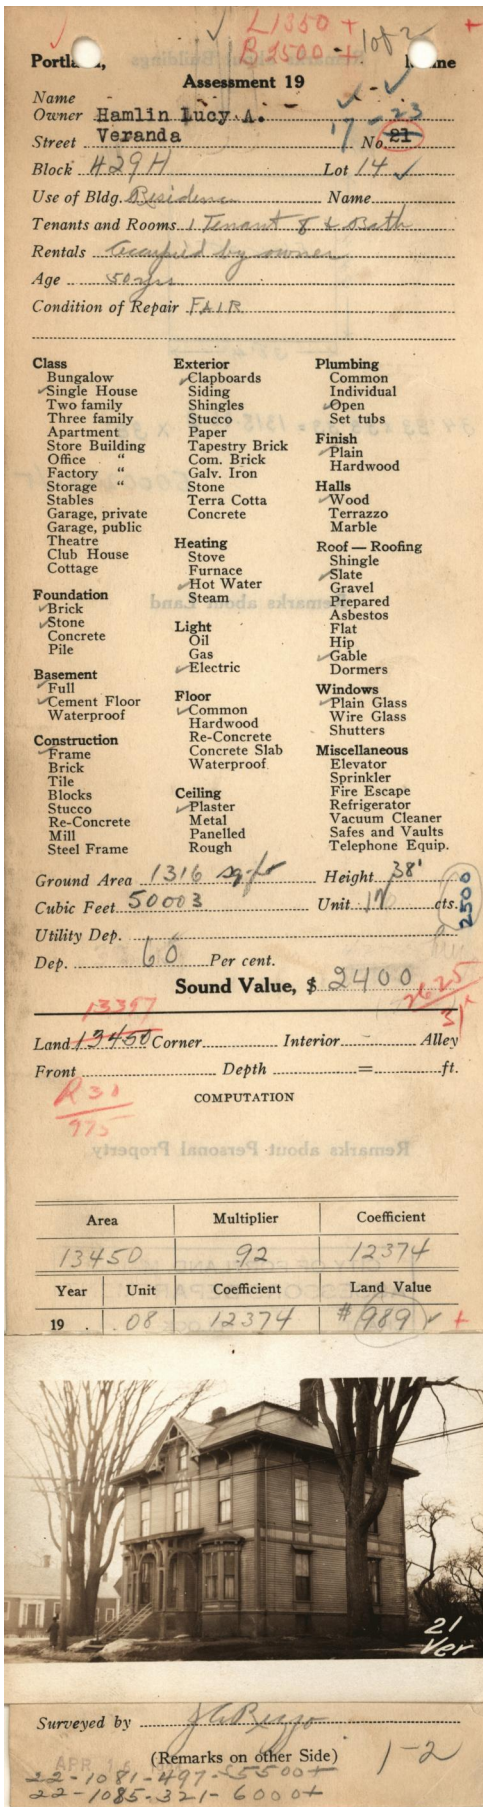 L1350 +
B2500 + 1 of 2 +
Portland, Maine
Assessment 19
Name
Owner Hamlin Lucy A.
Street Veranda 17-23 No. 21
Block 429H Lot 14
Use of Bldg. Residence Name
Tenants and Rooms 1 Tenant 8 & Bath
Rentals Occupied by owner
Age 50 yrs
Condition of Repair FAIR
Class
Bungalow
Single House
Two family
Three family
Apartment "
Store Building
Office "
Factory "
Storage "
Stables
Garage, private
Garage, public
Theatre
Club House
Cottage
Foundation
Brick
Stone
Concrete
Pile
Basement
Full
Cement Floor
Waterproof
Construction
Frame
Brick
Tile
Blocks
Stucco
Re-Concrete
Mill
Steel Frame
Exterior
Clapboards
Siding
Shingles
Stucco
Paper
Tapestry Brick
Com. Brick
Galv. Iron
Stone
Terra Cotta
Concrete
Heating
Stove
Furnace
Hot Water
Steam
Light
Oil
Gas
Electric
Floor
Common
Hardwood
Re-Concrete
Concrete Slab
Waterproof
Ceiling
Plaster
Metal
Panelled
Rough
Plumbing
Common
Individual
Open
Set tubs
Finish
Plain
Hardwood
Halls
Wood
Terrazzo
Marble
Roof — Roofing
Shingle
Slate
Gravel
Prepared
Asbestos
Flat
Hip
Gable
Dormers
Windows
Plain Glass
Wire Glass
Shutters
Miscellaneous
Elevator
Sprinkler
Fire Escape
Refrigerator
Vacuum Cleaner
Safes and Vaults
Telephone Equip.
Ground Area 1316 sq. ft Height 38'
Cubic Feet 50003 Unit 17 cts.
2500
Utility Dep.
Dep. 60 Per cent.
Sound Value, $ 2400
2625
31
13397
Land 13450 Corner Interior Alley
Front Depth = ft.
R 31
975
COMPUTATION
Area Multiplier Coefficient
13450 92 12374
Year Unit Coefficient Land Value
19 .08 12374 # 989 +
21
Ver
Surveyed by
(Remarks on other Side) 1-2
22-1081-497-5500+
22-1085-321-6000+